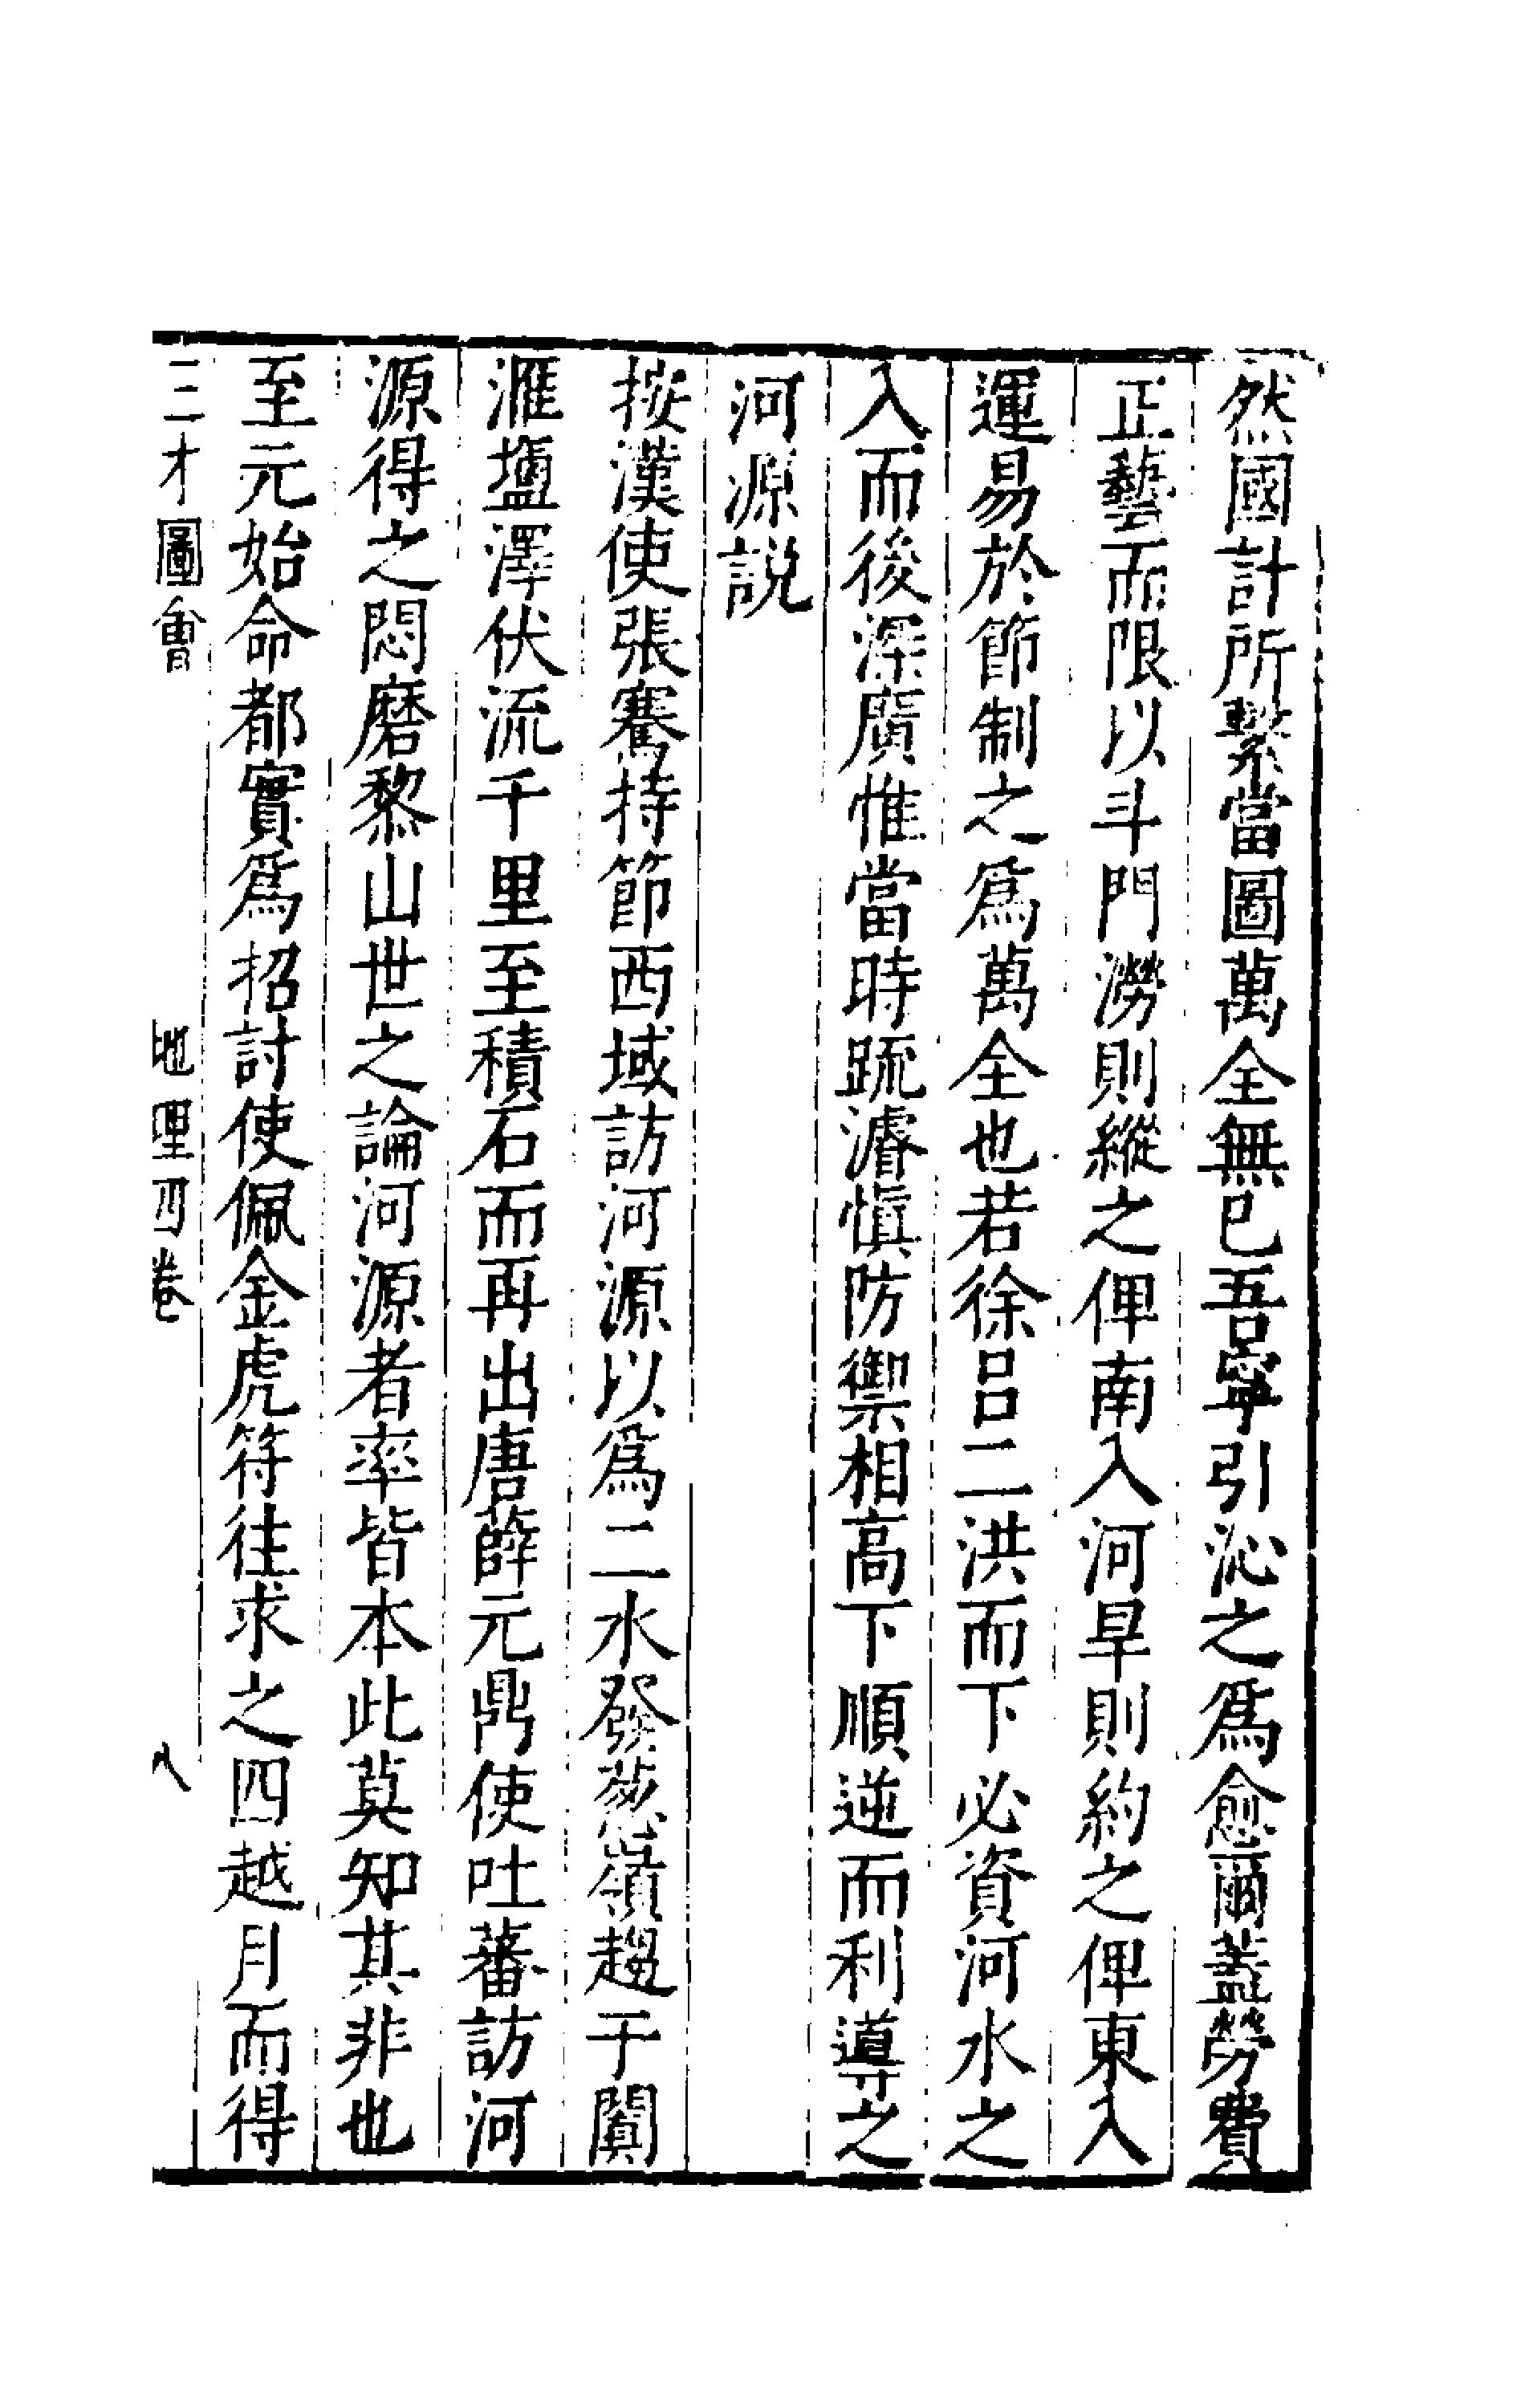 然國計所繫當圖萬全無已吾寧引沁之爲愈爾蓋勞費
正藝而限以斗門澇則縱之俾南入河旱則約之俾東入
運易於節制之爲萬全也若徐呂二洪而下必資河水之
入而後深廣惟當時疏濬愼防禦相高下順逆而利導之
河源説
按漢使張騫持節西域訪河源以爲二水發葱嶺趨于闐
滙塩澤伏流千里至積石而再出唐薛元鼎使吐蕃訪河
源得之悶磨黎山世之論河源者率皆本此莫知其非也
至元始命都實爲招討使佩金虎符往求之四越月而得
三才圖會 地理四卷 八